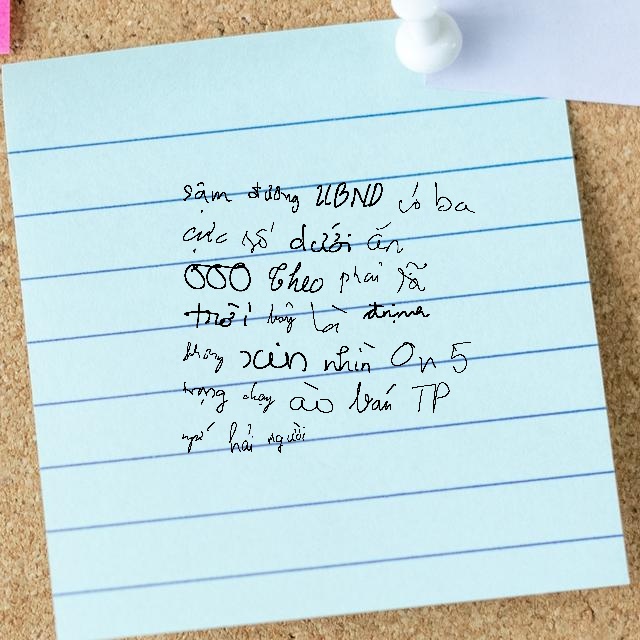 sậm đường UBND có ba
cực số dưới ấn
000 theo phải
trời bây là định
không xin nhìn On 5
trọng chạy ào ván TP
ngứ hải người